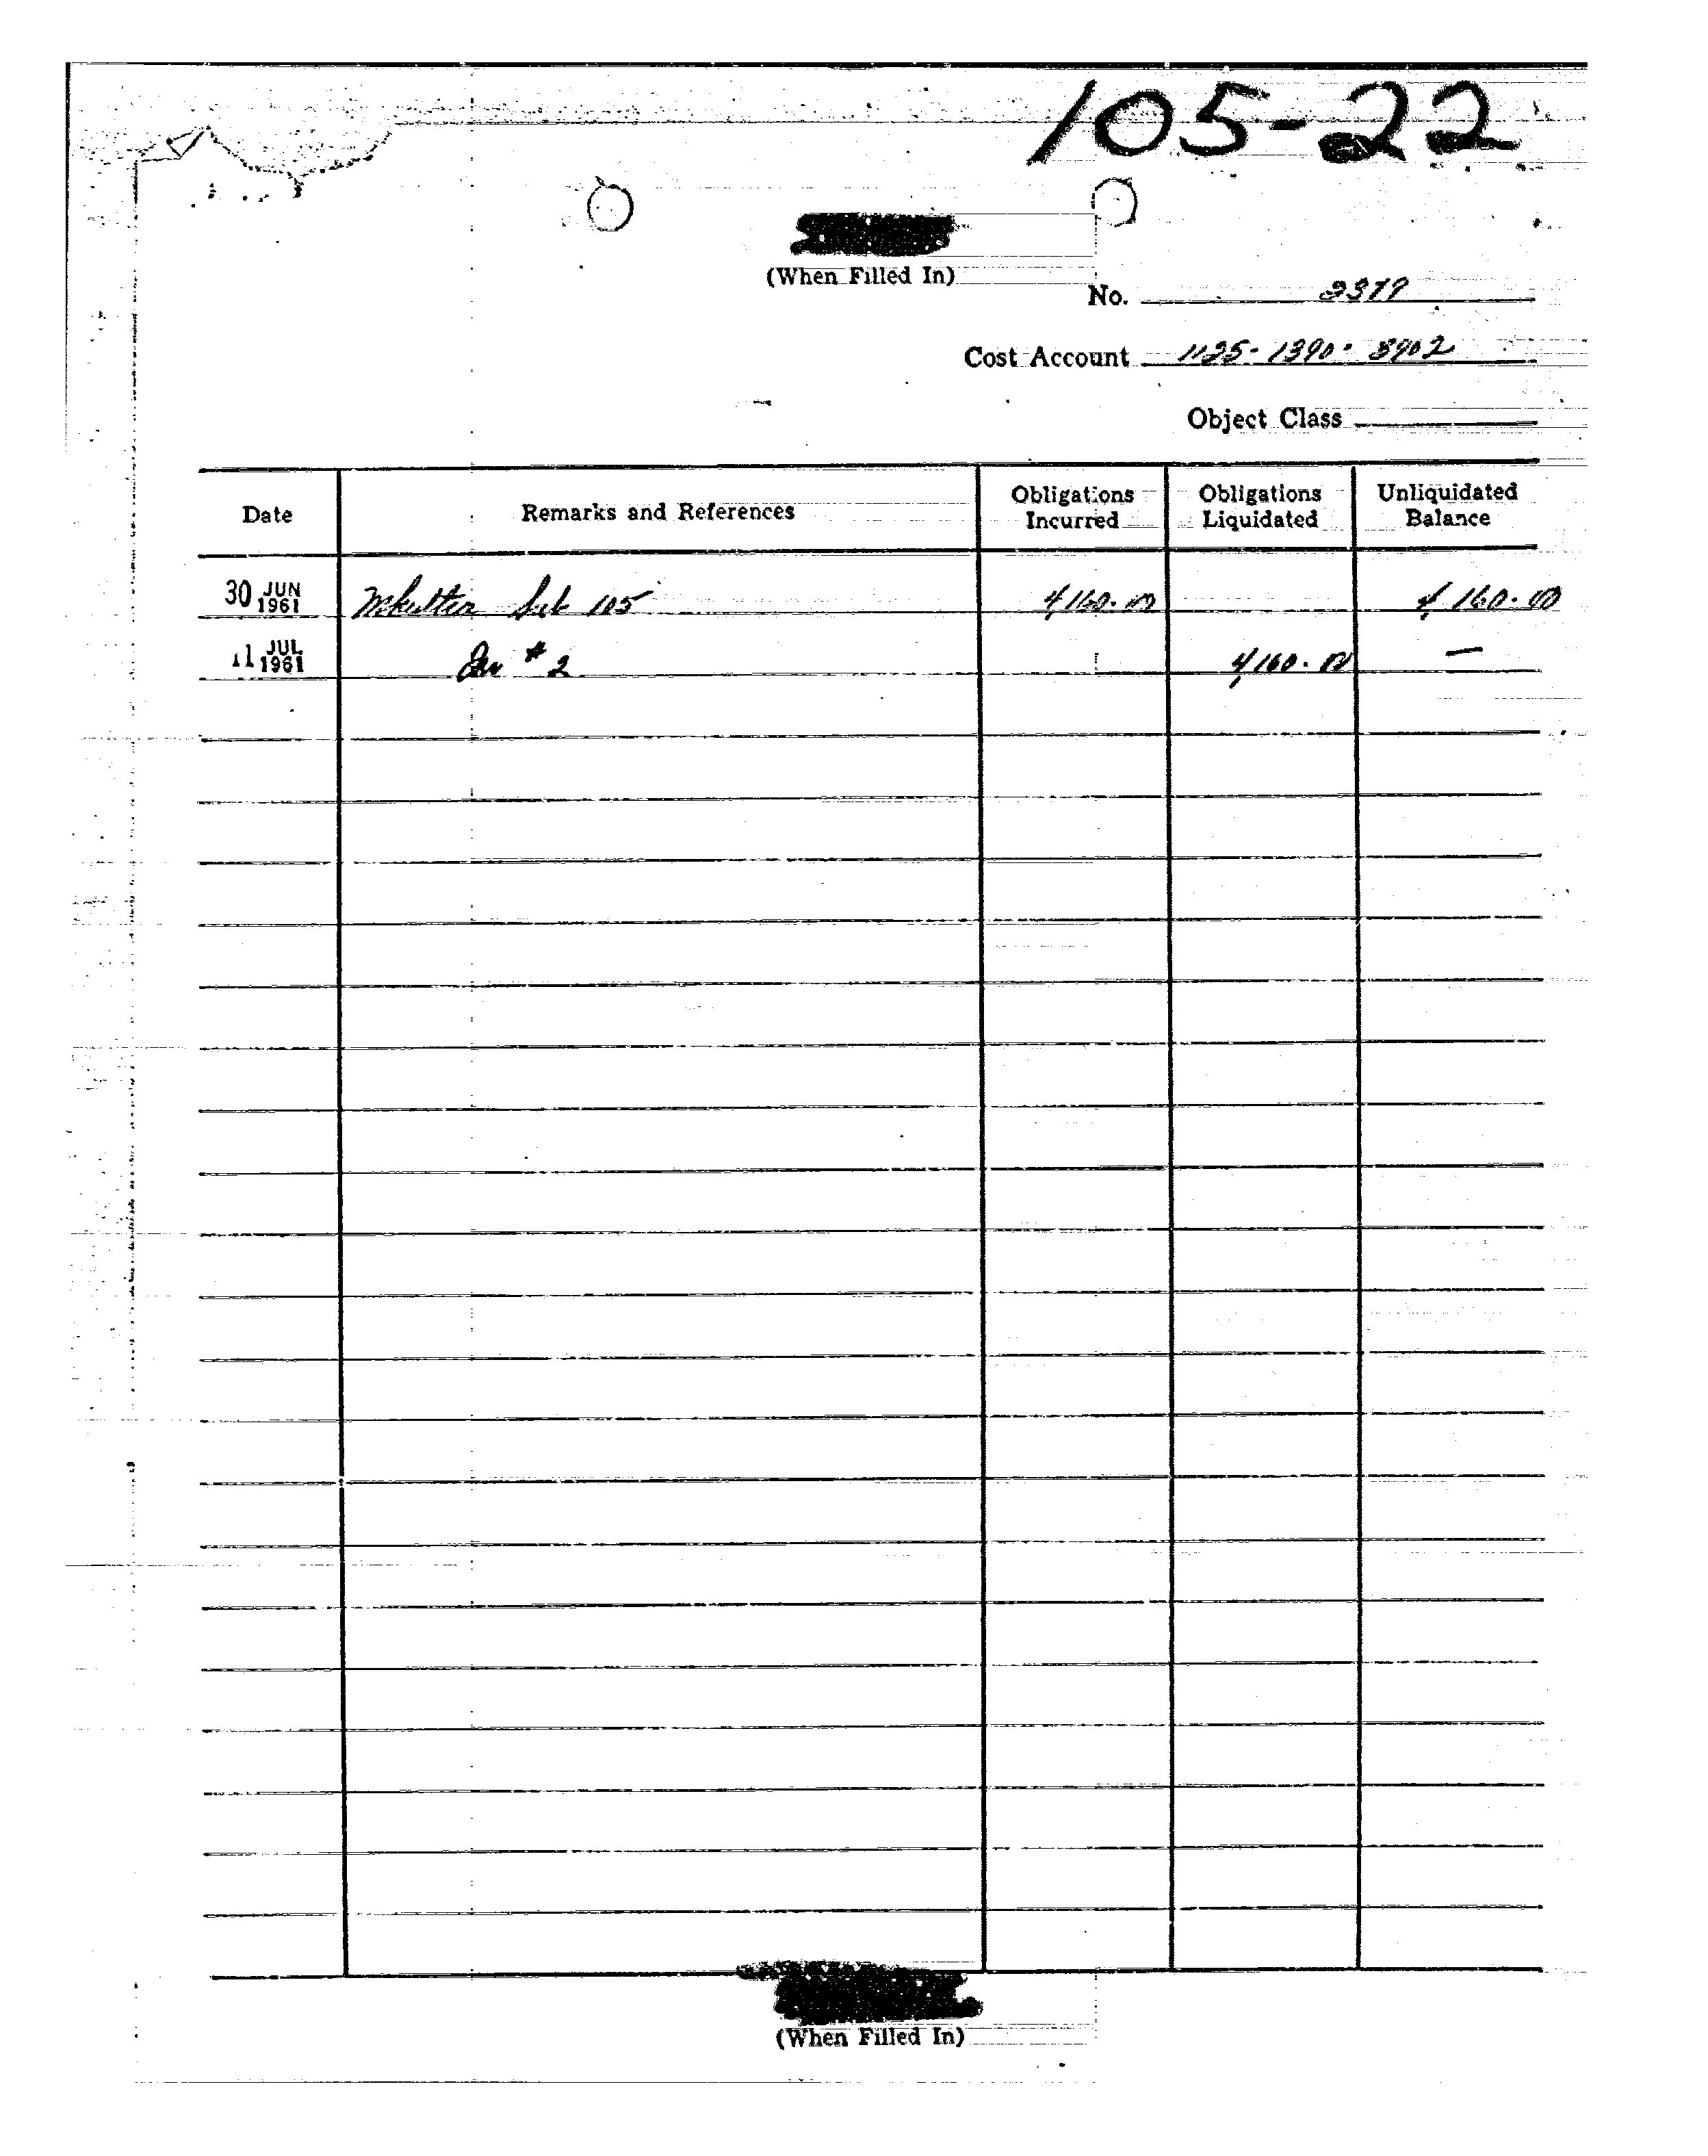 105-22
(When Filled In)
No. 2379
Cost Account 1125-1390-3902
Object Class
Date Remarks and References Obligations Incurred Obligations Liquidated Unliquidated Balance
30 JUN 1961 Mkultra Sub 105 4,160.00 4,160.00
11 JUL 1961 # 2 4,160.00 —
(When Filled In)